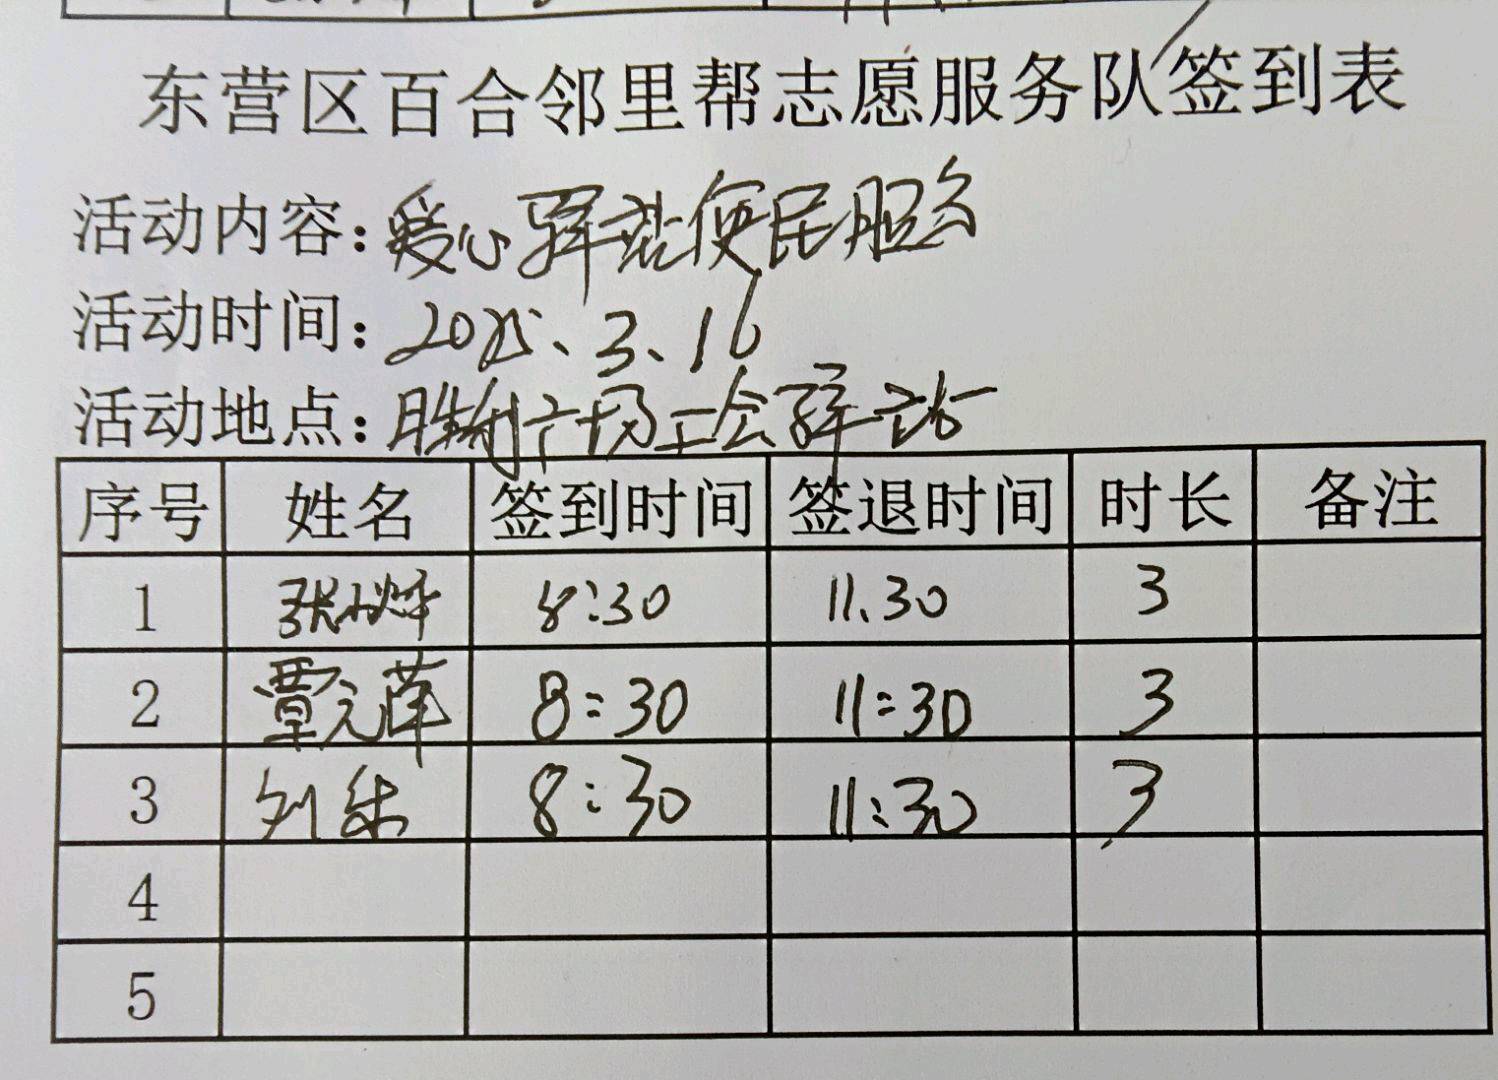 东营区百合邻里帮志愿服务队签到表
活动内容:爱心驿站便民服务
活动时间:2025、3、16
活动地点:胜利广场工会驿站
序号 姓名 签到时间 签退时间 时长 备注
1 张 8:30 11.30 3
2 覃元萍 8:30 11:30 3
3 刘 8:30 11:30 3
4
5